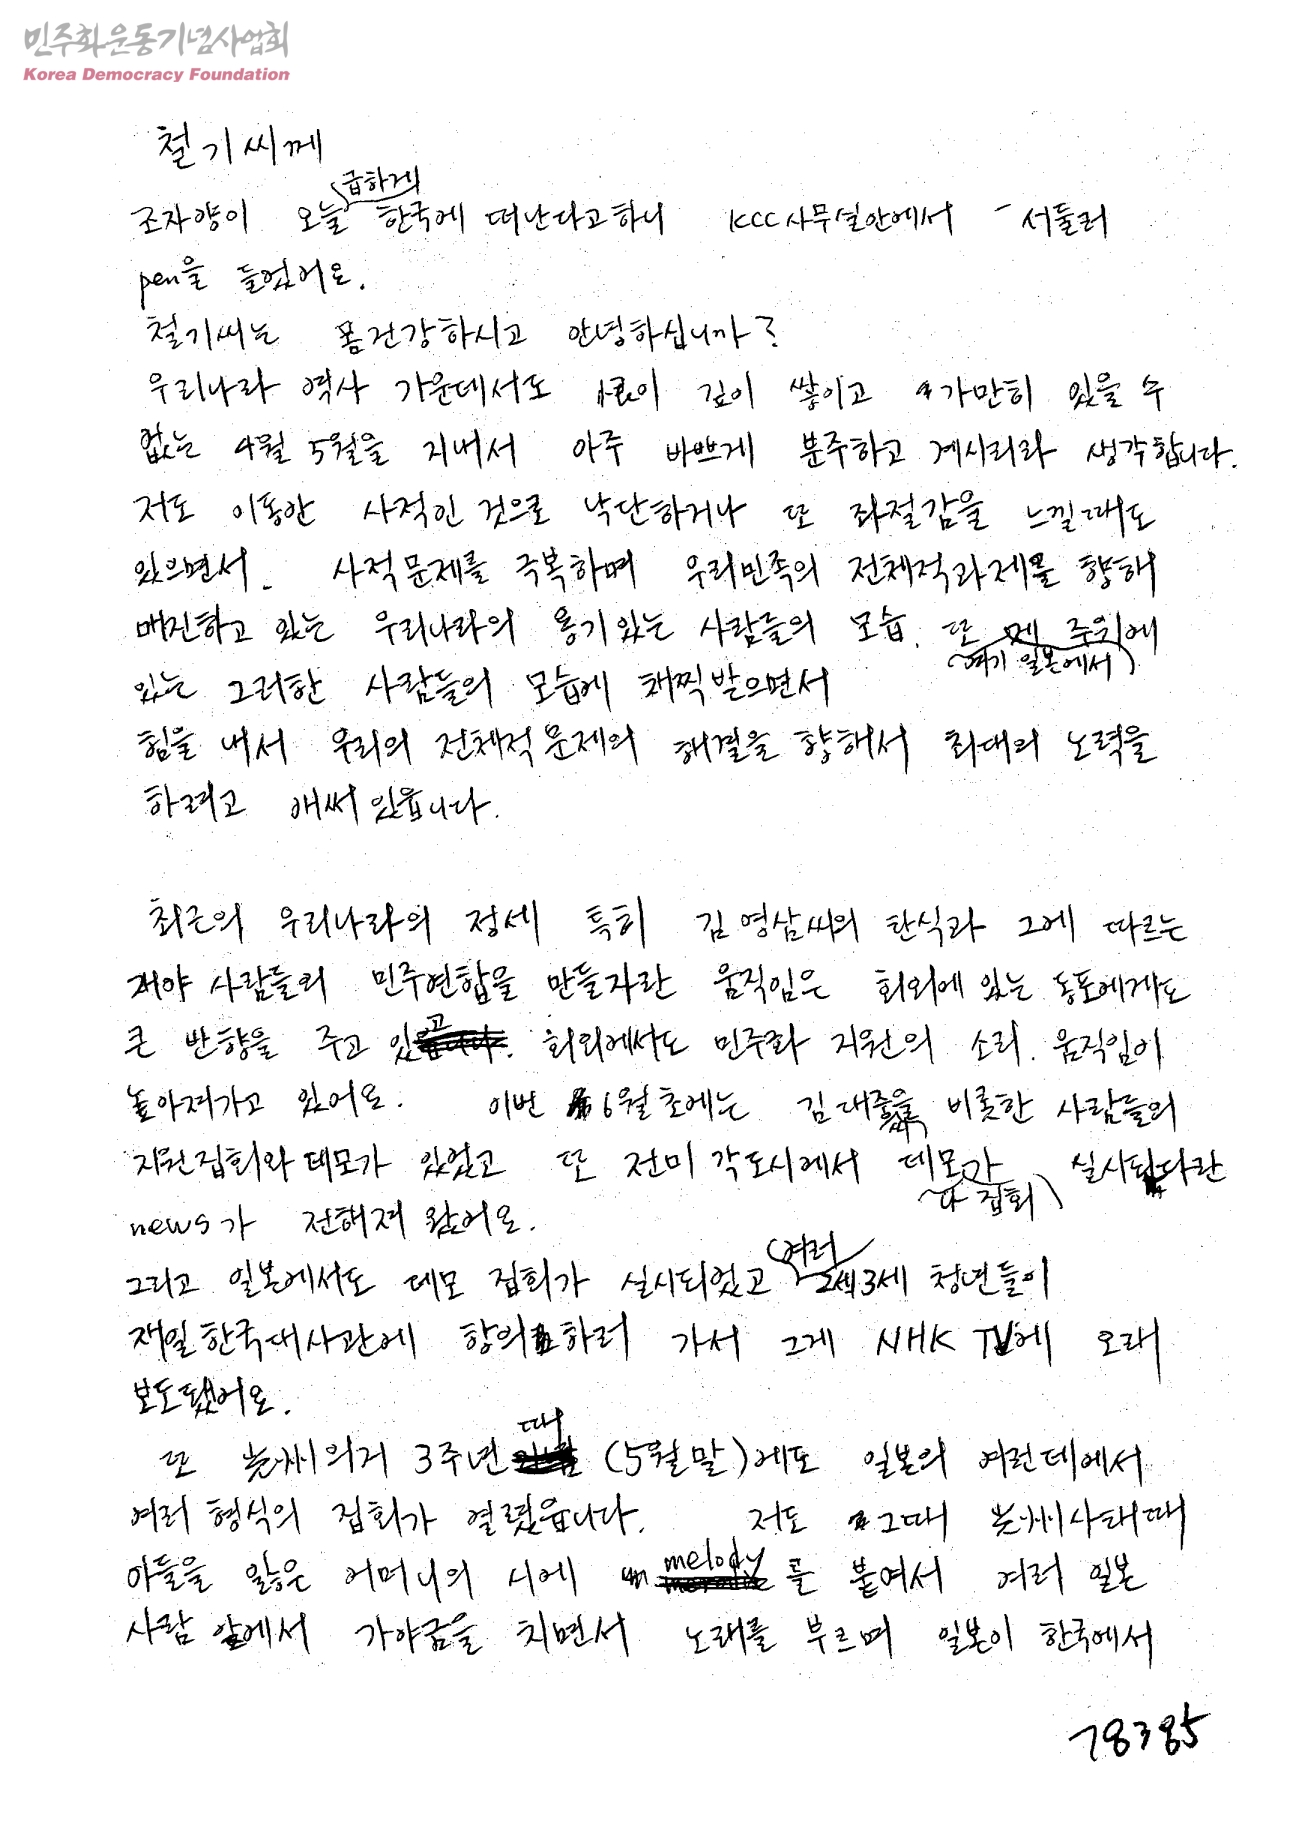 민주화운동기념사업회
Korea Democracy Foundation
철기씨께
조자양이 오늘 급하게 한국에 떠난다고하니 KCC사무실안에서 서둘러
pen을 들었어요.
철기씨는 몸건강하시고 안녕하십니까?
우리나라 역사 가운데서도 恨이 깊이 쌓이고 가만히 있을 수
없는 4월 5월을 지내서 아주 바쁘게 분주하고 계시리라 생각합니다.
저도 이동안 사적인 것으로 낙단하거나 또 좌절감을 느낄때도
있으면서. 사적문제를 극복하며 우리민족의 전체적과제를 향해
매진하고 있는 우리나라의 용기있는 사람들의 모습. 또 제 주위에
(여기 일본에서)
있는 그러한 사람들의 모습에 채찍받으면서
힘을 내서 우리의 전체적문제의 해결을 향해서 최대의 노력을
하려고 애써있읍니다.
최근의 우리나라의 정세 특히 김영삼씨의 단식과 그에 따르는
재야 사람들의 민주연합을 만들자란 움직임은 회외에 있는 동포에게도
큰 반향을 주고 있고 회외에서도 민주화 지원의 소리. 움직임이
높아져가고 있어요. 이번 6월초에는 김대중씨를 비롯한 사람들의
지원집회와 데모가 있었고 또 전미 각도시에서 데모가 실시됐다란
나 집회
news가 전해져 왔어요.
그리고 일본에서도 데모 집회가 실시되었고 여러 2세3세 청년들이
재일한국대사관에 항의하러 가서 그게 NHK TV에 오래
보도됐어요.
또 光州의거 3주년 때 (5월말)에도 일본의 여런데에서
여러 형식의 집회가 열렸읍니다. 저도 그때 光州사태때
아들을 잃은 어머니의 시에 melody를 붙여서 여러 일본
사람 앞에서 가야굼을 치면서 노래를 부르며 일본이 한국에서
78385